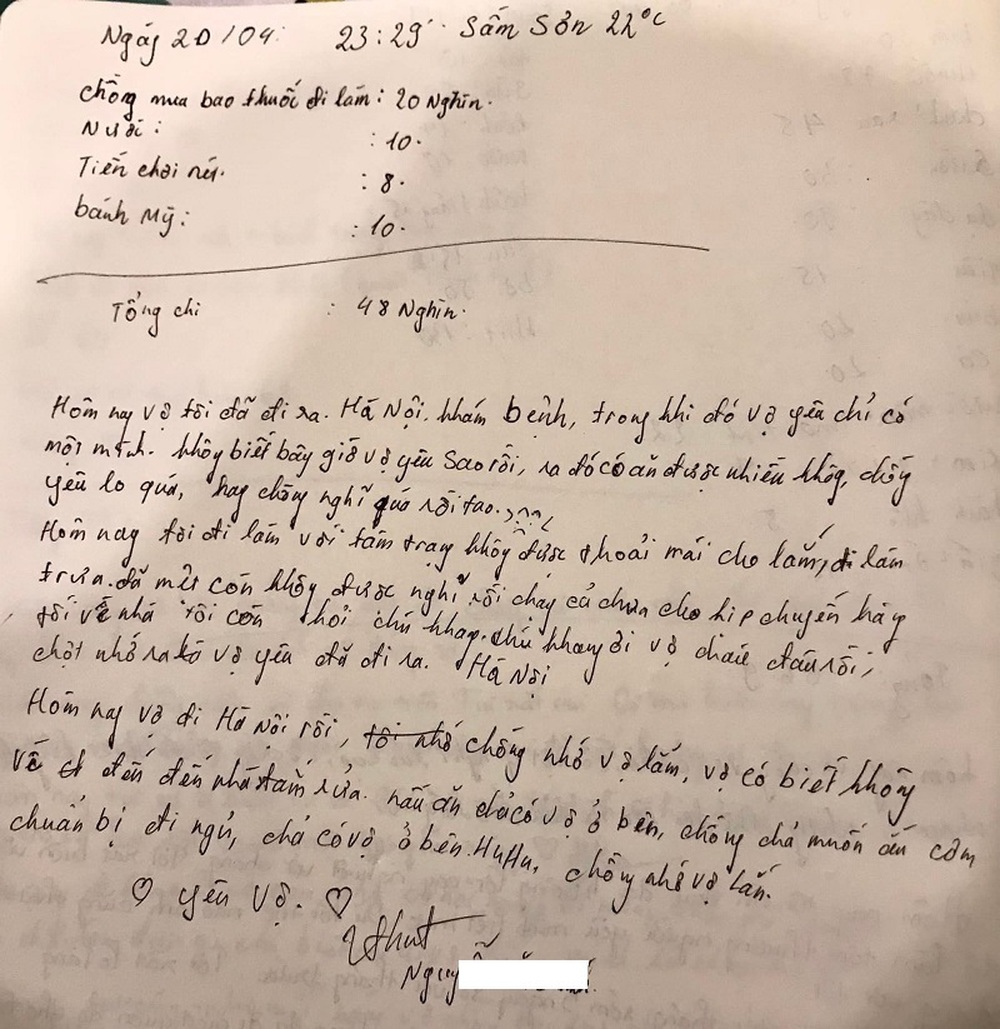 Ngáy 20/04: 23:29' Sầm Sơn 22°C
chồng mua bao thuốc đi làm: 20 Nghìn.
Nước: : 10.
Tiền chơi : 8.
bánh Mỳ: : 10.
Tổng chi : 48 Nghìn.
Hôm nay vợ tôi đã đi ra. Hà Nội. khám bệnh, trong khi đó vợ yêu chỉ có
một mình. không biết bây giờ vợ yêu sao rồi, ra đó có ăn được nhiều không, chồng
yêu lo quá, hay chồng nghĩ quá rồi tao.
Hôm nay tôi đi làm với tâm trạng không được thoải mái cho lắm, đi làm
trưa. đã mệt còn không được nghỉ rồi chạy cả chưa cho kịp chuyến hàng
tối về nhà tôi còn hỏi chú khang. chú khang ơi vợ cháu đâu rồi,
chợt nhớ ra là vợ yêu đã đi ra. Hà Nội
Hôm nay vợ đi Hà Nội rồi, tôi nhớ chồng nhớ vợ lắm, vợ có biết không
về đến đến nhà tắm rửa. nấu ăn chả có vợ ở bên, chồng chả muốn ăn cơm
chuẩn bị đi ngủ, chả có vợ ở bên. HuHu, chồng nhớ vợ lắm.
♡ yêu vợ. ♡